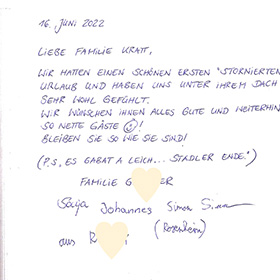 16. JUNI 2022
LIEBE FAMILIE KRATT,
WIR HATTEN EINEN SCHÖNEN ERSTEN "STORNIERTEN
URLAUB UND HABEN UNS UNTER IHREM DACH
SEHR WOHL GEFÜHLT.
WIR WÜNSCHEN IHNEN ALLES GUTE UND WEITERHIN
SO NETTE GÄSTE!
BLEIBEN SIE SO WIE SIE SIND!
(P.S. ES GABAT A LEICH... STADLER ENDE.")
FAMILIE G ER
Johannes Simon
(Rosenheim)
aus R i